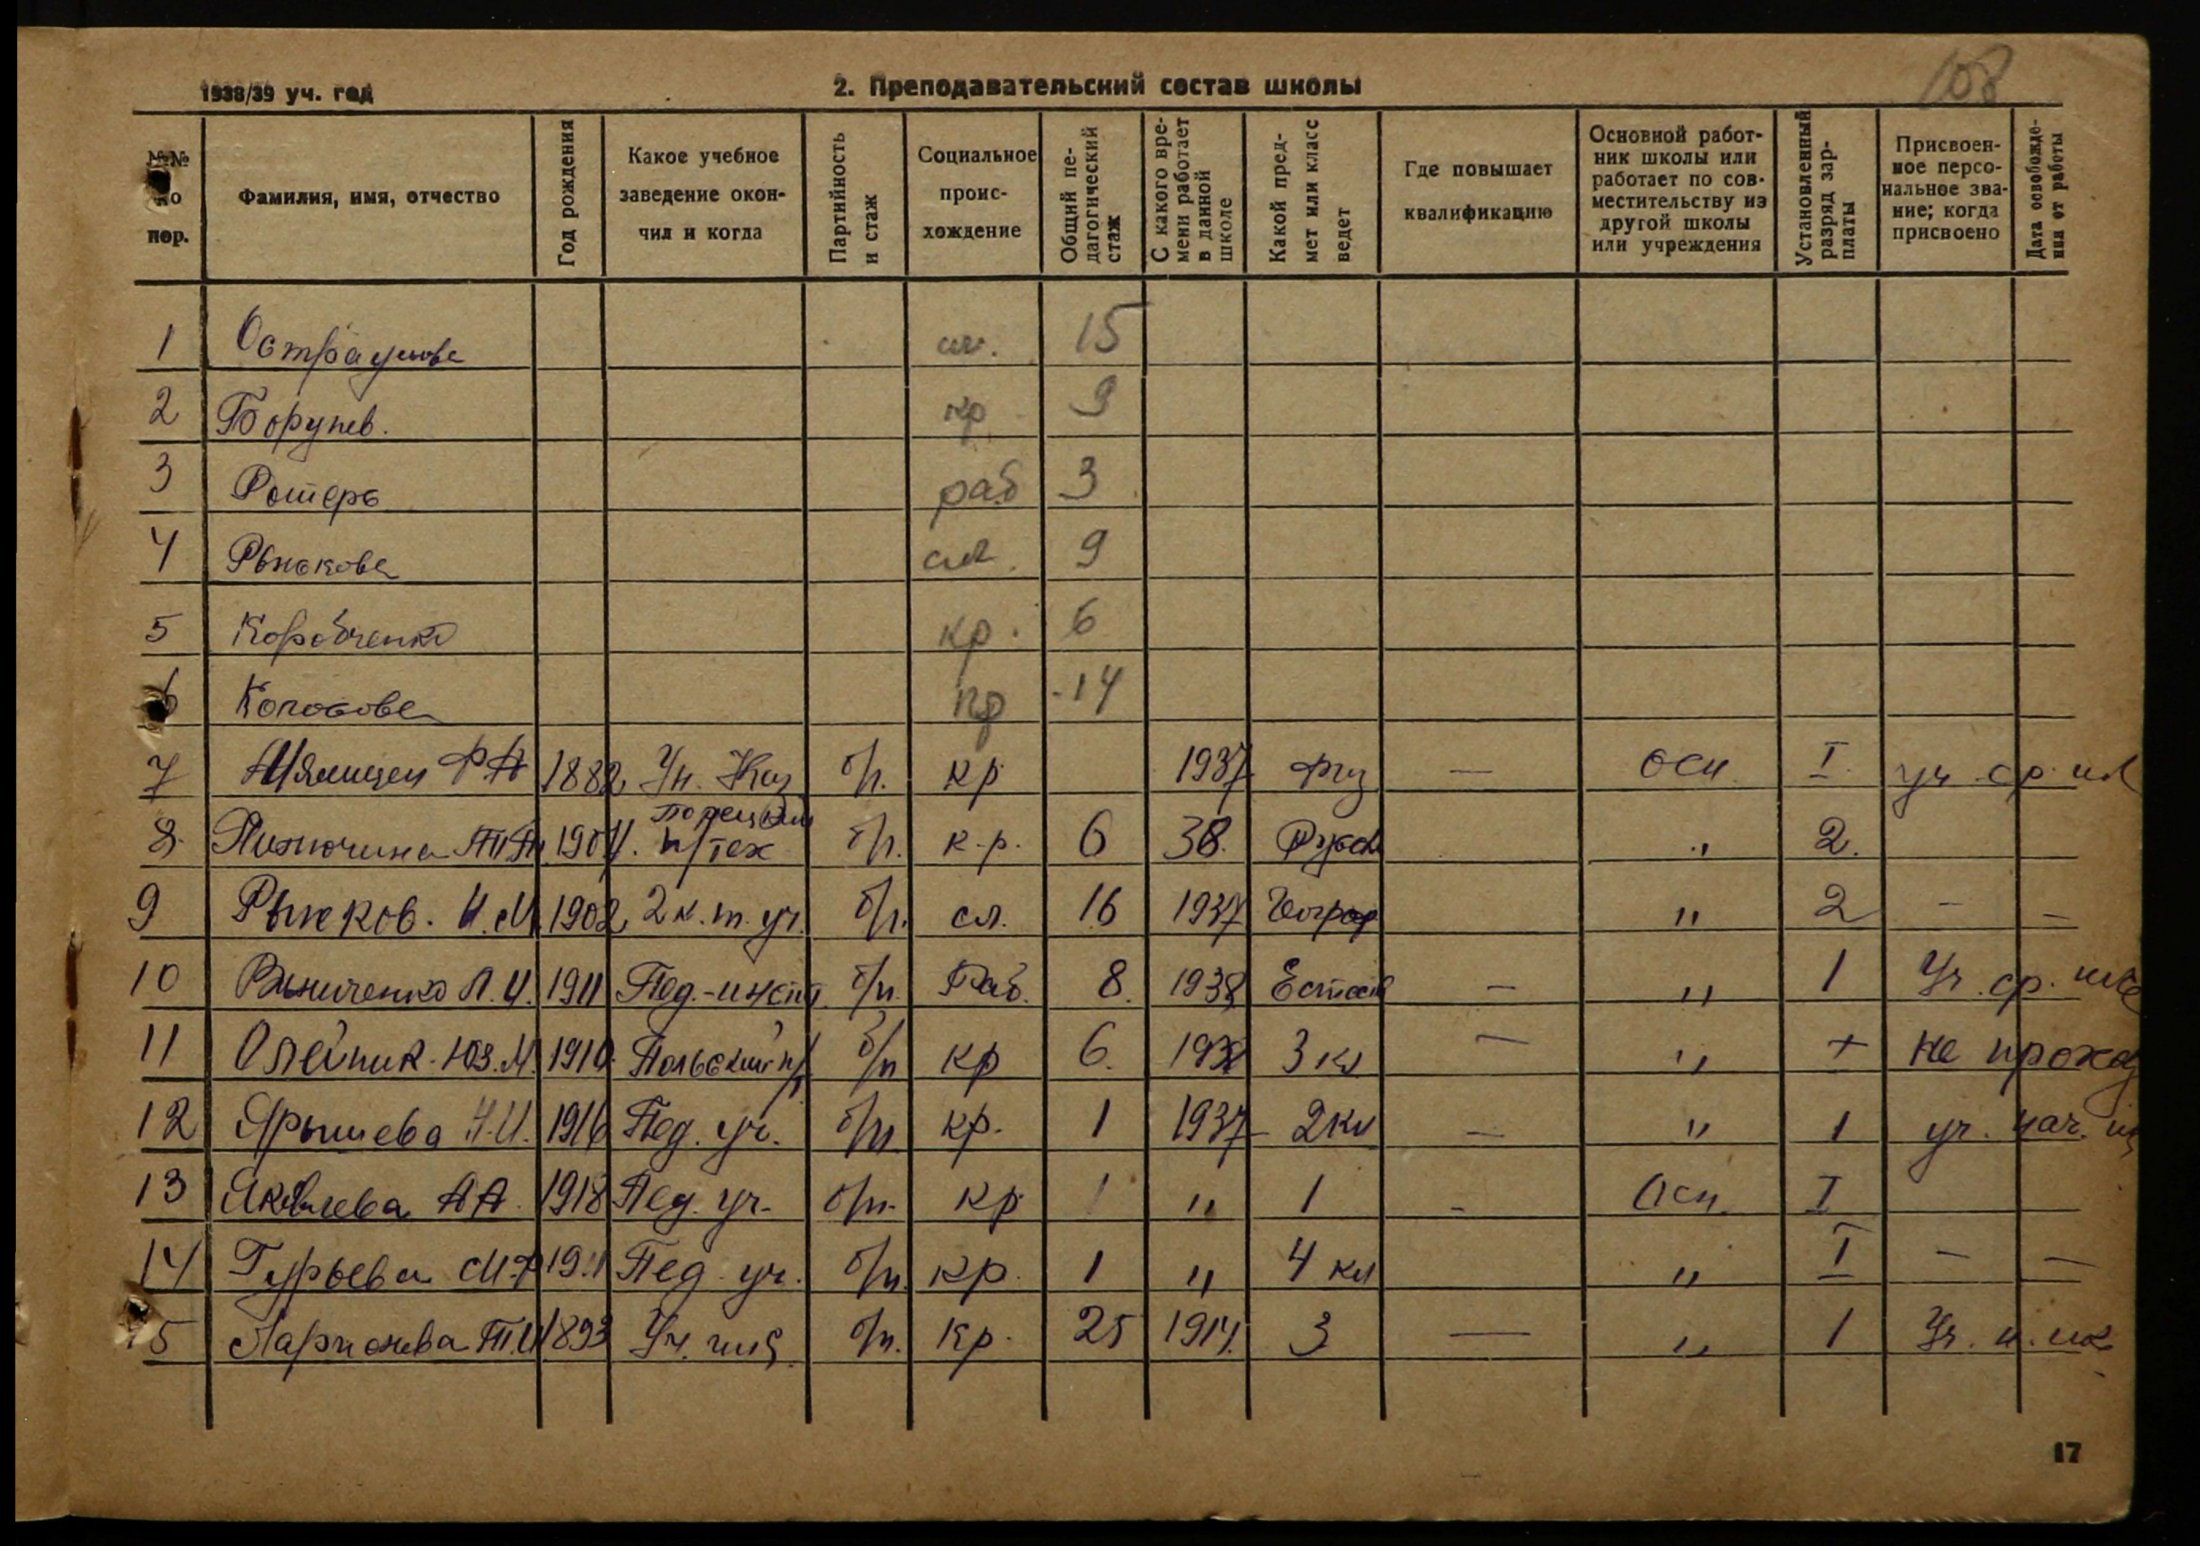 108
1938/39 уч. год
2. Преподавательский состав школы
№№ по пор.
Фамилия, имя, отчество
Год рождения
Какое учебное заведение окончил и когда
Партийность и стаж
Социальное происхождение
Общий педагогический стаж
С какого времени работает в данной школе
Какой предмет или класс ведет
Где повышает квалификацию
Основной работник школы или работает по совместительству из другой школы или учреждения
Установленный разряд зарплаты
Присвоенное персональное звание; когда присвоено
Дата освобождения от работы
1 15
2 кр 9
3 раб 3
4 сл. 9
5 Коробченко кр. 6
6 14
7 1882 Ун. Каз б/п. кр 1937 физ — осн. I. уч. ср. шк
8. 1904. п/тех б/п. к-р. 6 38. Русск " 2.
9 Рынков. И.М. 1902 2 к. т. уч. б/п. сл. 16 1937 Географ " 2 — —
10 Винниченко Л.И. 1911 Пед.-инст. б/п. Раб. 8. 1938 Естеств — " 1 Уч. ср. шк
11 Олейник Юз. М. 1910 Польский б/п кр 6. 1938 3 кл — " + не проход
12 Ярышева Н.И. 1916 Пед. уч. б/п кр. 1 1937 2 кл — " 1 уч. нач. ш
13 Яковлева А А. 1918 Пед. уч. б/п. кр 1 " 1 - Осн. I
14 Гурьева М.Ф. Пед. уч. б/п. кр. 1 " 4 кл " I — —
15 Ларионова Т.И. 1893 Уч. б/п. кр. 25 1914. 3 — " 1 Уч. н. шк
17